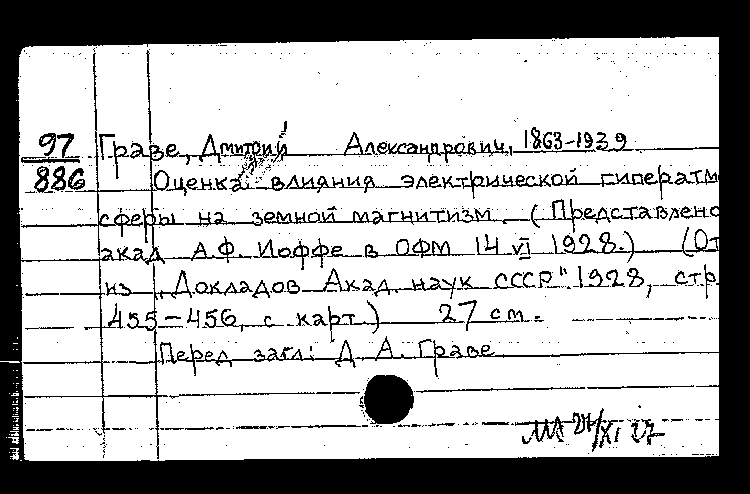 97 Граве, Дмитрий Александрович, 1863-1939
886 Оценка влияния электрической гиператмо
сферы на земной магнитизм. (Представлено
акад А.Ф. Иоффе в ОФМ 14 VI 1928.) (От
из „Докладов Акад. наук СССР" 1928, стр
455-456, с карт.) 27 см.
Перед загл: Д. А. Граве